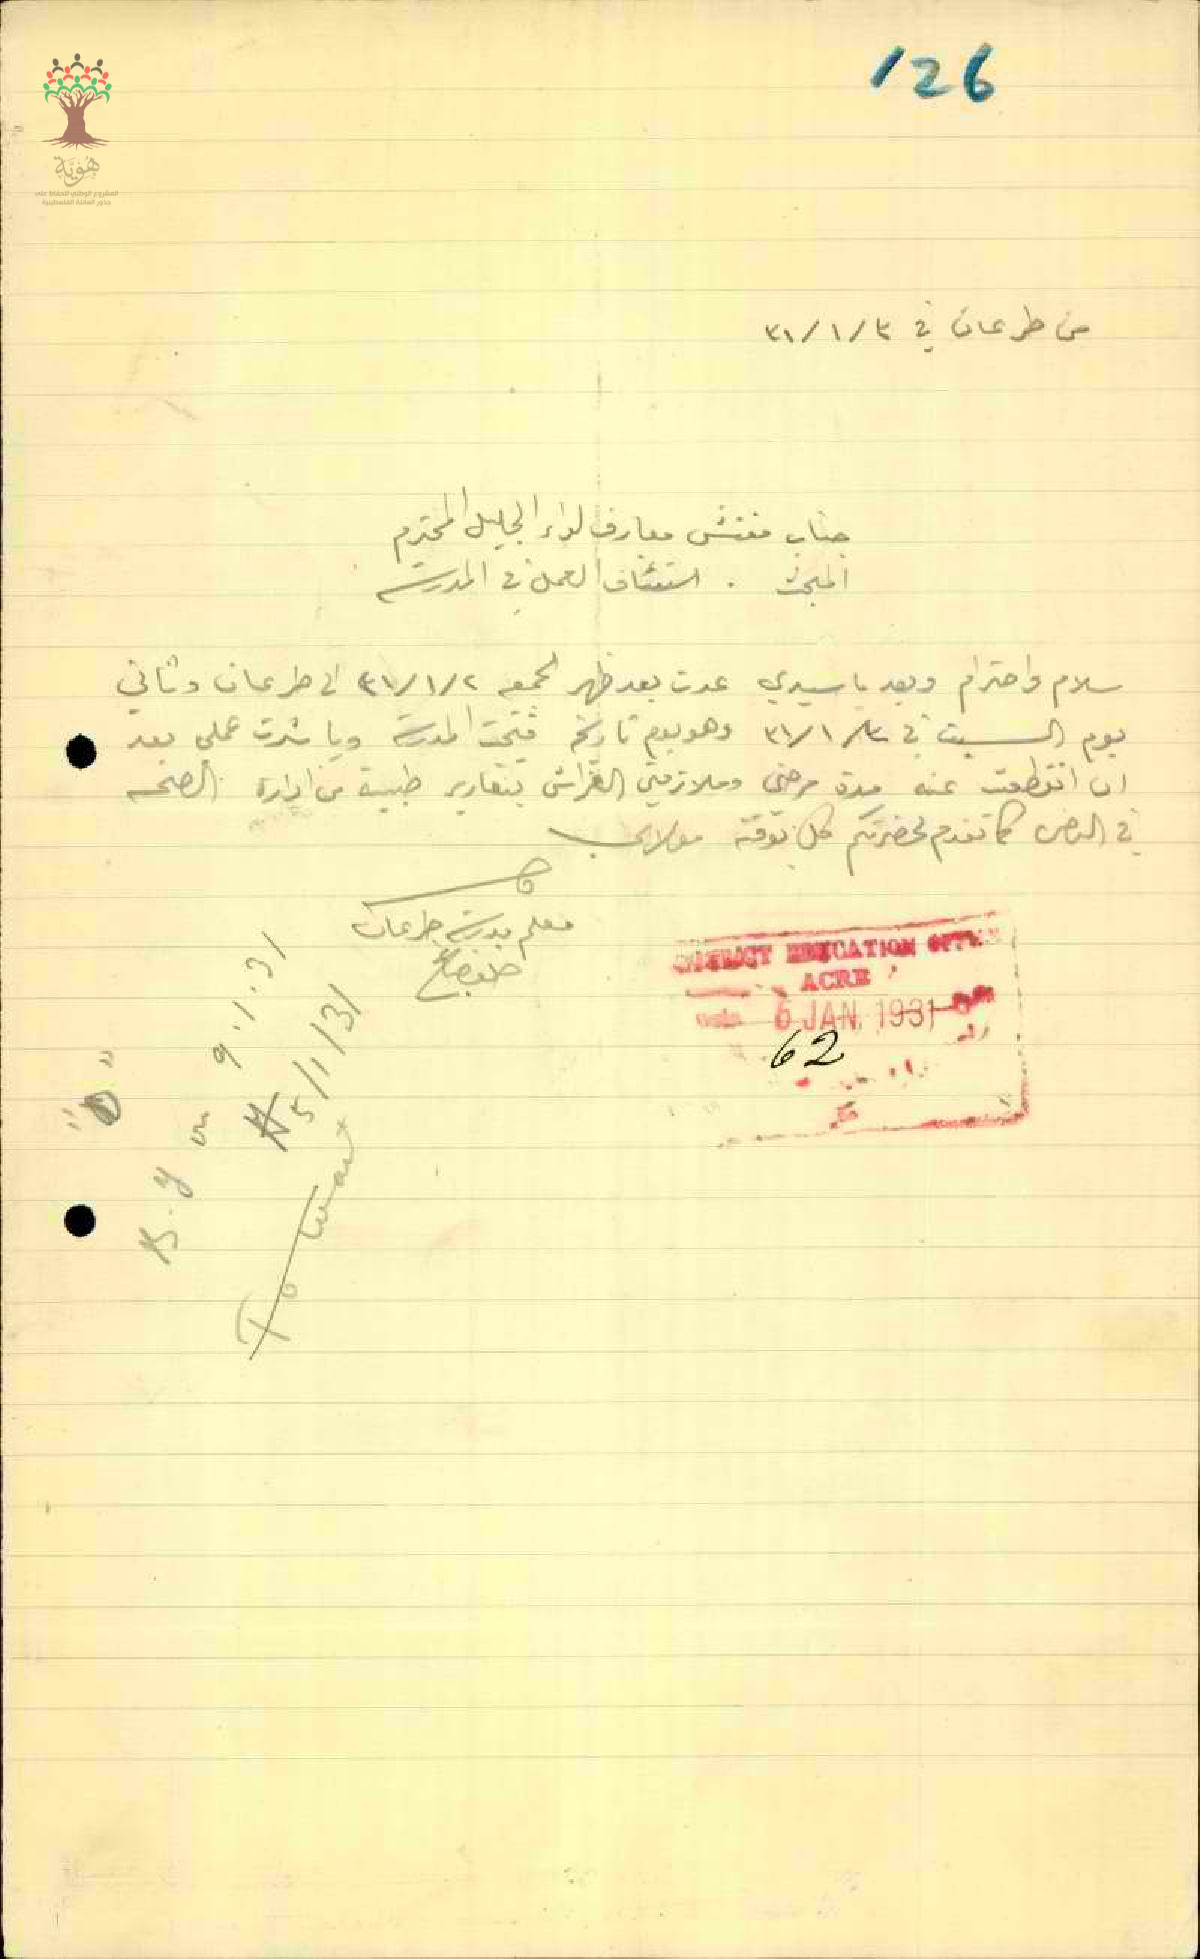 126
هُويَّة
المشروع الوطني للحفاظ على
جذور العائلة الفلسطينية
من طرعان في ٣١/١/٣
جناب مفتش معارف لواء الجليل المحترم
المبحث . استئناف العمل في المدرسة
سلام واحترام وبعد يا سيدي عدت بعد ظهر الجمعه ٣١/١/٢ الى طرعان وثاني
يوم السبت في ٣١/١/٣ وهو يوم تاريخه فتحت المدرسة وباشرت عملي بعد
ان انقطعت عنه مدة مرضي وملازمتي الفراش بتقارير طبية من ادارة الصحه
في كما تقدم لحضرتكم كل بوقته مولاي
معلم مدرسة طرعان
DISTRICT EDUCATION OFFICE
ACRE
Date 6 JAN. 1931
62
5/1/31
B.Y on 9.1.31